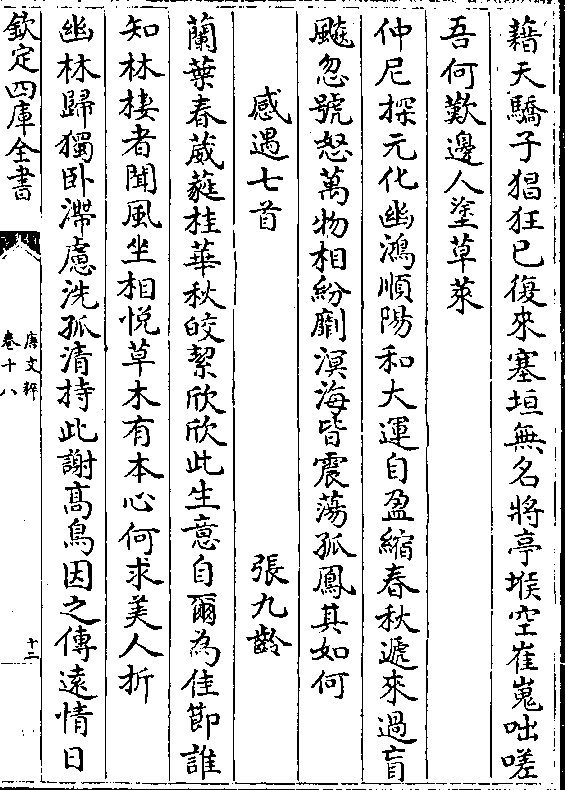 藉天驕子猖狂已復來塞垣無名將亭堠空崔嵬咄嗟
吾何歎邊人塗草萊
仲尼探元化幽鴻順陽和大運自盈縮春秋遞來過盲
飈忽號怒萬物相紛劘溟海皆震蕩孤鳳其如何
感遇七首 張九齡
蘭葉春葳蕤桂華秋皎絜欣欣此生意自爾為佳節誰
知林棲者聞風坐相悅草木有本心何求美人折
幽林歸獨卧滯慮洗孤清持此謝髙鳥因之傳遠情日
欽定四庫全書
唐文粹
卷十八
十二